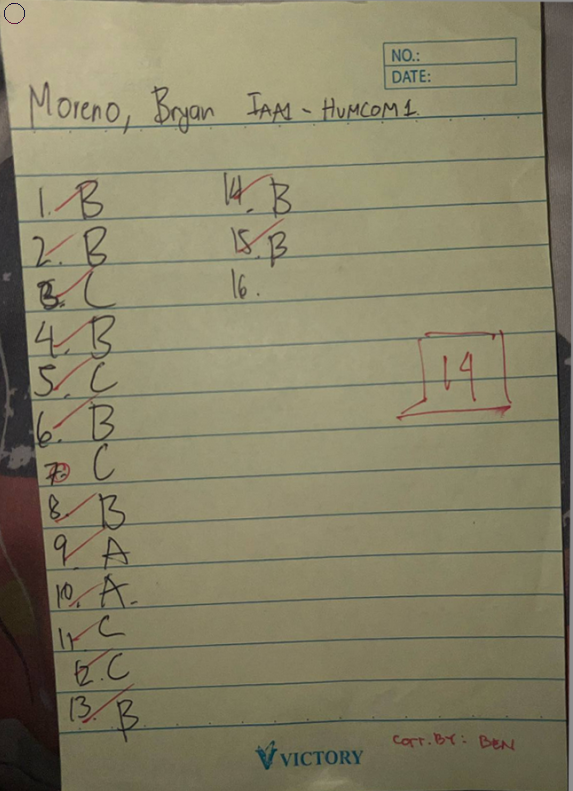 NO.:
DATE:
Moreno, Bryan IAA1 - HUMCOM 1
1. B
2. B
3. C
4. B
5. C
6. B
7. C
8. B
9. A
10. A.
11. C
12. C
13. B
14. B
15. B
16.
14
VICTORY
Corr. BY: BEN